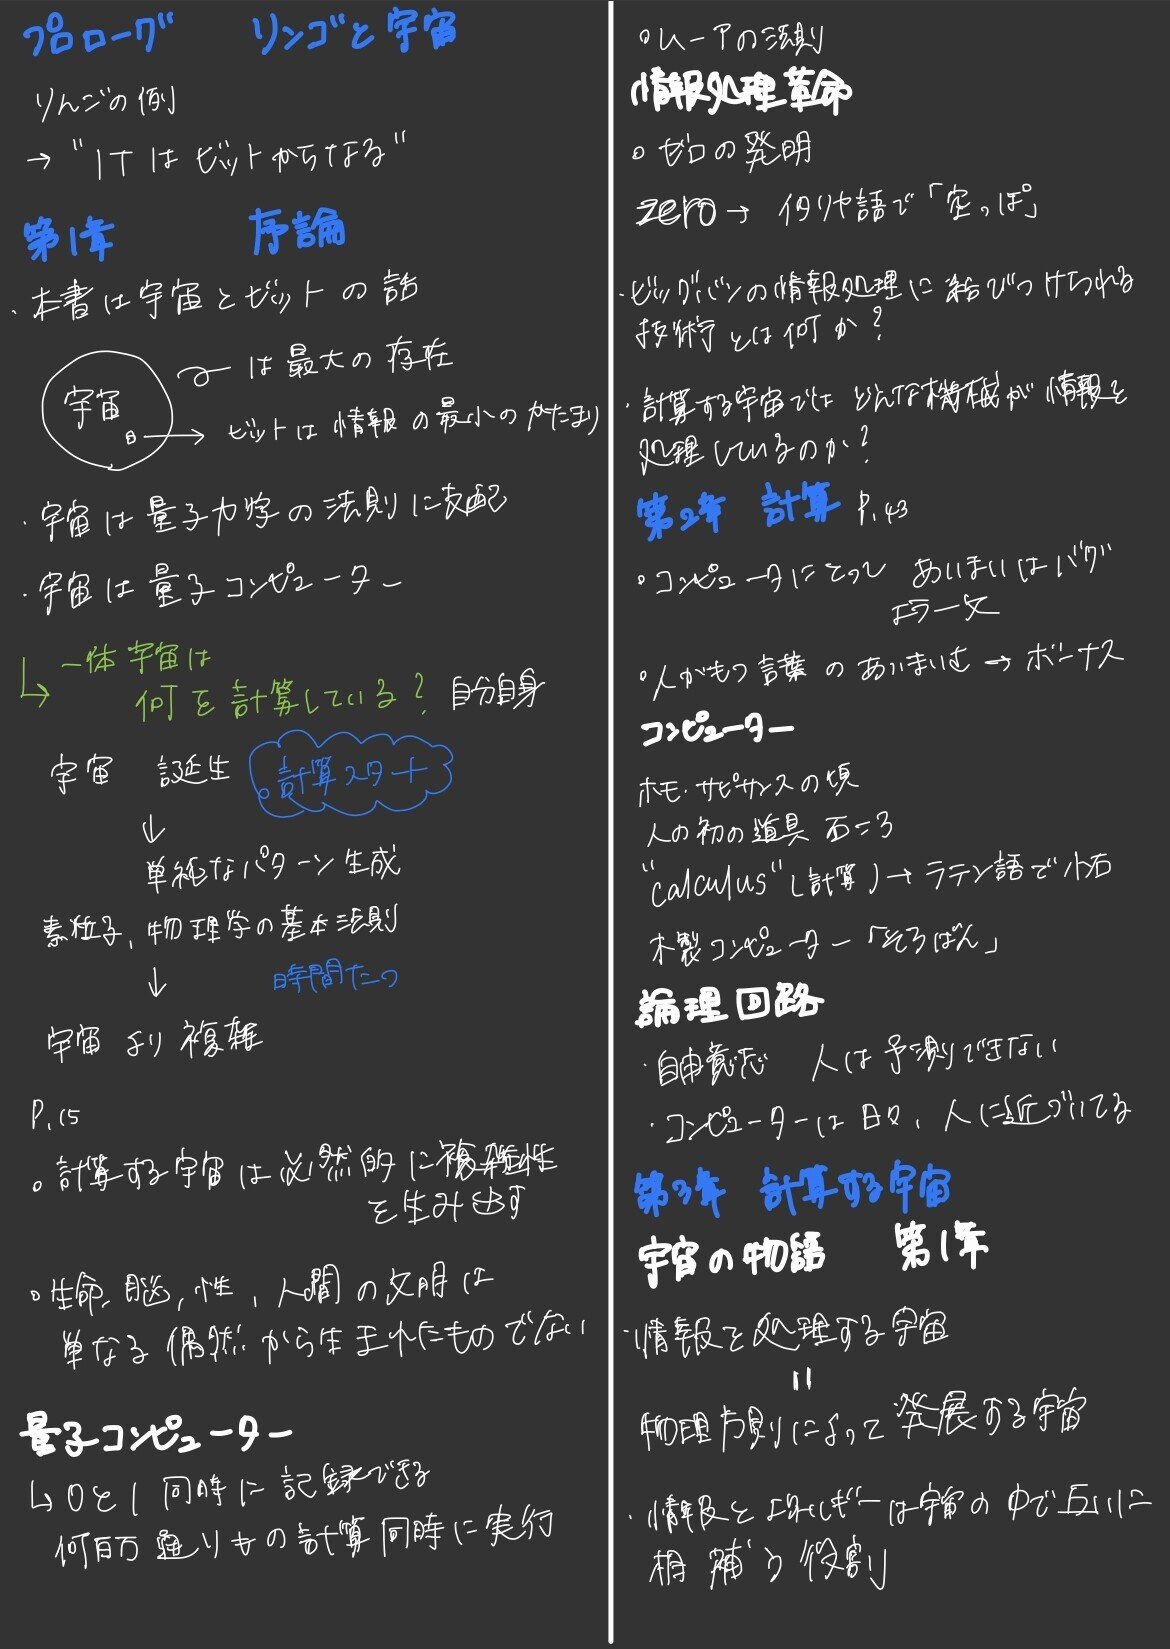 プロローグ リンゴと宇宙
りんごの例
→ "ITはビットからなる"
第1章 序論
・本書は宇宙とビットの話
は最大の存在
宇宙
→ ビットは情報の最小のかたまり
・宇宙は量子力学の法則に支配
・宇宙は量子コンピューター
↳ 一体宇宙は
何を計算している? 自分自身
宇宙 誕生 計算スタート
↓
単純なパターン生成
素粒子、物理学の基本法則
↓ 時間たつ
宇宙 より 複雑
P.15
○計算する宇宙は必然的に複雑性
を生み出す
○生命、脳、性、人間の文明は
単なる偶然から生まれたものでない
量子コンピューター
↳ 0と1 同時に記録できる
何百万通りもの計算同時に実行
○ムーアの法則
情報処理革命
○ゼロの発明
zero → イタリヤ語で「空っぽ」
・ビッグバンの情報処理に結びつけられる
技術とは何か?
・計算する宇宙ではどんな機械が情報を
処理しているのか?
第2章 計算 P.43
○コンピュータにとって あいまいはバグ
エラー
○人がもつ言葉のあいまいさ → ボーナス
コンピューター
ホモ・サピサンスの頃
人の初の道具 石ころ
"calculus"(計算)→ ラテン語で小石
木製コンピューター「そろばん」
論理回路
・自由意志 人は予測できない
・コンピューターは日々、人に近づいてる
第3章 計算する宇宙
宇宙の物語 第1章
・情報を処理する宇宙
=
物理方則によって発展する宇宙
・情報とエネルギーは宇宙の中で互いに
相補う役割